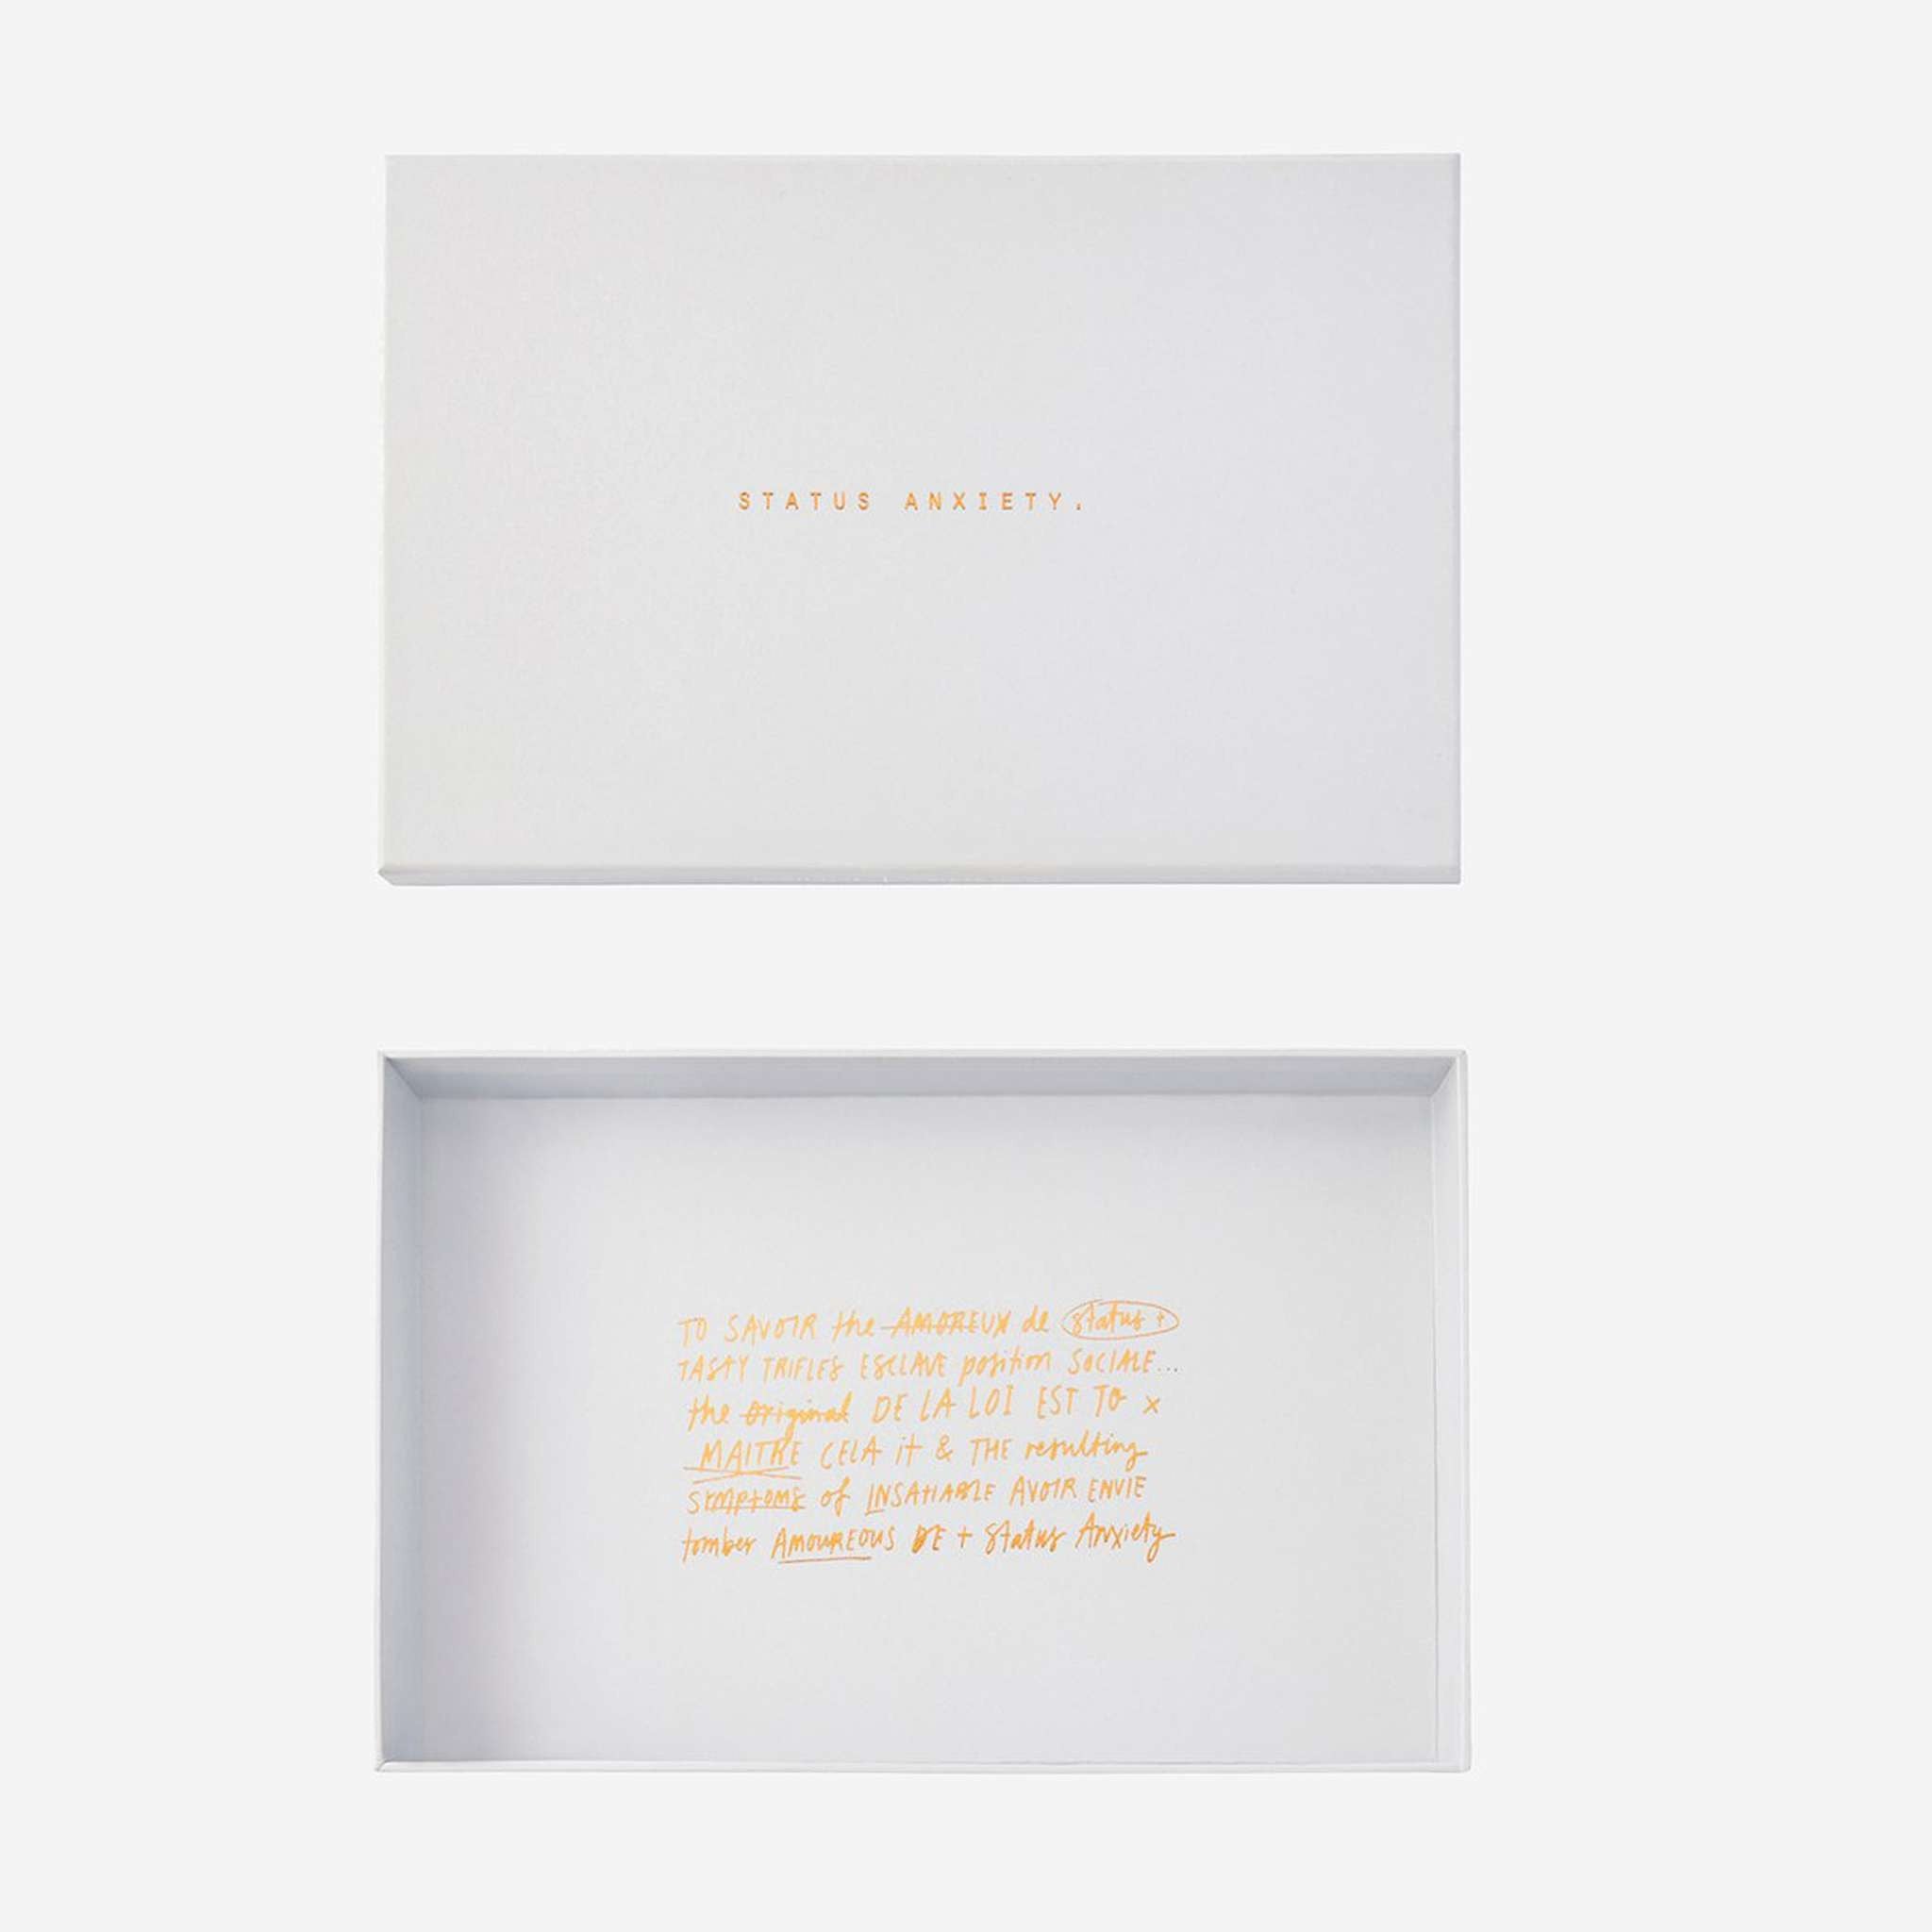 STATUS ANXIETY.
TO SAVOIR the AMOREUX de status +
TASTY TRIFLES ESCLAVE position SOCIALE...
the original DE LA LOI EST TO x
MAITRE CELA it & THE resulting
SYMPTOMS of INSATIABLE AVOIR ENVIE
tomber AMOUREOUS DE + Status Anxiety